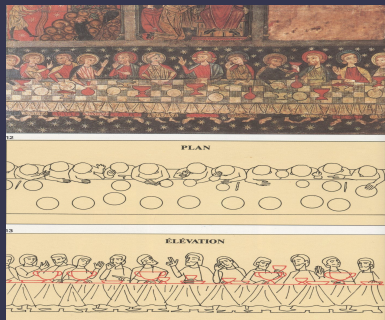 12
PLAN
13
ÉLÉVATION